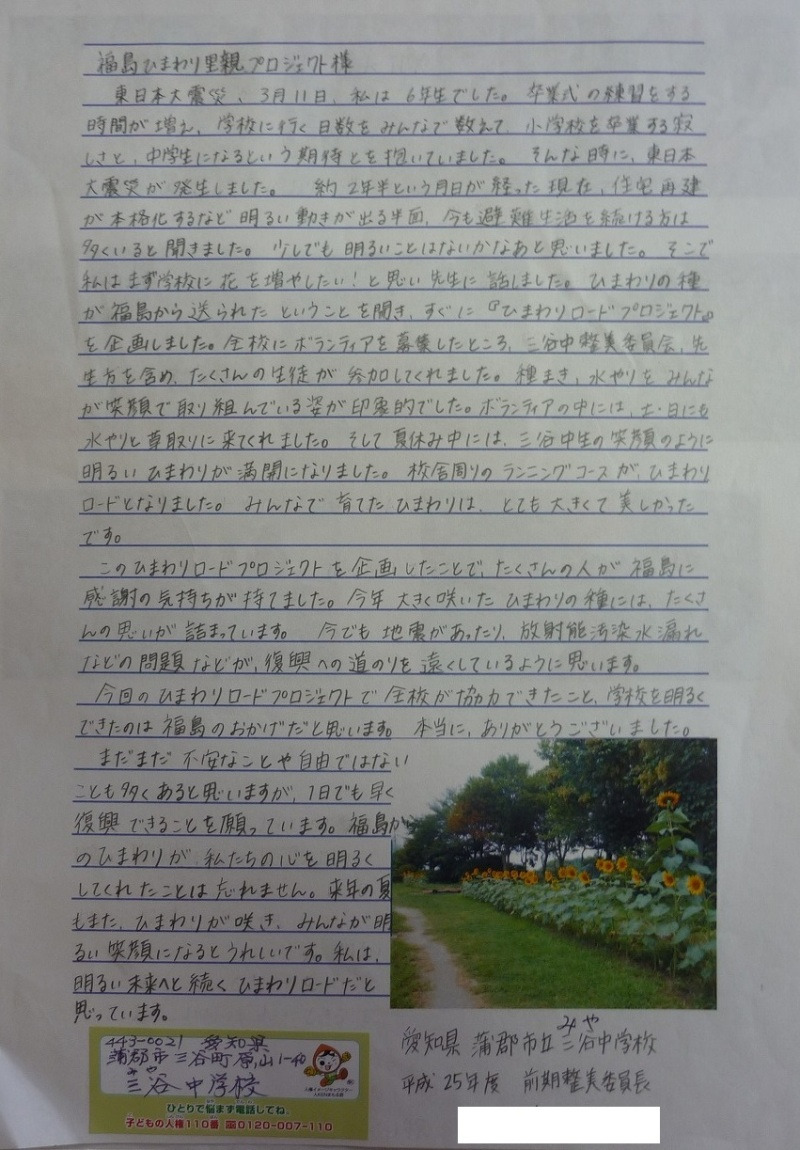 福島ひまわり里親プロジェクト様
東日本大震災、3月11日、私は6年生でした。卒業式の練習をする
時間が増え、学校に行く日数をみんなで数えて、小学校を卒業する寂
しさと、中学生になるという期待とを抱いていました。そんな時に、東日本
大震災が発生しました。約2年半という月日が経った現在、住宅再建
が本格化するなど明るい動きが出る半面、今も避難生活を続ける方は
多くいると聞きました。少しでも明るいことはないかなあと思いました。そこで
私はまず学校に花を増やしたい!と思い先生に話しました。ひまわりの種
が福島から送られたということを聞き、すぐに『ひまわりロードプロジェクト』
を企画しました。全校にボランティアを募集したところ、三谷中整美委員会、先
生方を含め、たくさんの生徒が参加してくれました。種まき、水やりをみんな
が笑顔で取り組んでいる姿が印象的でした。ボランティアの中には、土・日にも
水やりと草取りに来てくれました。そして夏休み中には、三谷中生の笑顔のように
明るいひまわりが満開になりました。校舎周りのランニングコースが、ひまわり
ロードとなりました。みんなで育てたひまわりは、とても大きくて美しかった
です。
このひまわりロードプロジェクトを企画したことで、たくさんの人が福島に
感謝の気持ちが持てました。今年大きく咲いたひまわりの種には、たくさ
んの思いが詰まっています。今でも地震があったり、放射能汚染水漏れ
などの問題などが、復興への道のりを遠くしているように思います。
今回のひまわりロードプロジェクトで全校が協力できたこと、学校を明るく
できたのは福島のおかげだと思います。本当に、ありがとうございました。
まだまだ不安なことや自由ではない
ことも多くあると思いますが、1日でも早く
復興できることを願っています。福島が
のひまわりが私たちの心を明るく
してくれたことは忘れません。来年の夏
もまた、ひまわりが咲き、みんなが明
るい笑顔になるとうれしいです。私は、
明るい未来へと続くひまわりロードだと
思っています。
443-0021 愛知県
蒲郡市三谷町原山1-40
みや
三谷中学校
ひとりで悩まず電話してね。
子どもの人権110番 0120-007-110
みや
愛知県 蒲郡市立三谷中学校
平成25年度 前期整美委員長